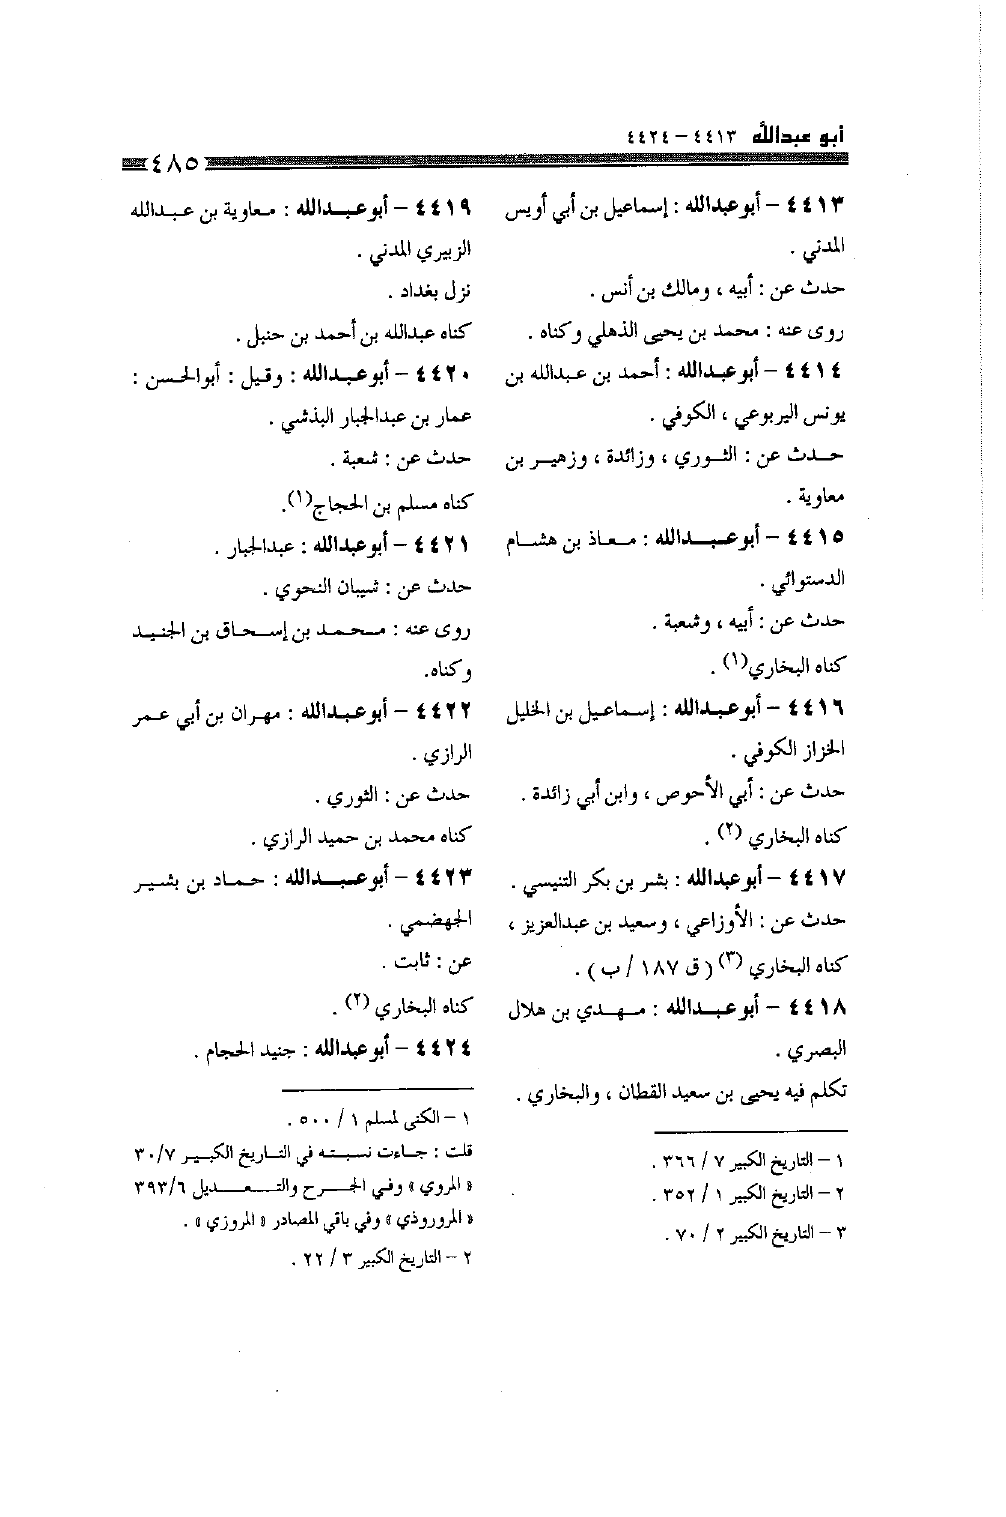 أبو عبدالله ٤٤١٣ – ٤٤٢٤
٤٨٥
٤٤١٣ – أبوعبدالله : إسماعيل بن أبي أويس
المدني .
حدث عن : أبيه ، ومالك بن أنس .
روى عنه : محمد بن يحيى الذهلي وكناه .
٤٤١٤ – أبوعبدالله : أحمد بن عبدالله بن
يونس اليربوعي ، الكوفي .
حدث عن : الثوري ، وزائدة ، وزهير بن
معاوية .
٤٤١٥ – أبوعبدالله : معاذ بن هشام
الدستوائي .
حدث عن : أبيه ، وشعبة .
كناه البخاري(١) .
٤٤١٦ – أبوعبدالله : إسماعيل بن الخليل
الخزاز الكوفي .
حدث عن : أبي الأحوص ، وابن أبي زائدة .
كناه البخاري (٢) .
٤٤١٧ – أبوعبدالله : بشر بن بكر التنيسي .
حدث عن : الأوزاعي ، وسعيد بن عبدالعزيز ،
كناه البخاري (٣) ( ق ١٨٧ / ب ) .
٤٤١٨ – أبوعبدالله : مهدي بن هلال
البصري .
تكلم فيه يحيى بن سعيد القطان ، والبخاري .
١ – التاريخ الكبير ٧ / ٣٦٦ .
٢ – التاريخ الكبير ١ / ٣٥٢ .
٣ – التاريخ الكبير ٢ / ٧٠ .
٤٤١٩ – أبوعبدالله : معاوية بن عبدالله
الزبيري المدني .
نزل بغداد .
كناه عبدالله بن أحمد بن حنبل .
٤٤٢٠ – أبوعبدالله : وقيل : أبوالحسن :
عمار بن عبدالجبار البذشي .
حدث عن : شعبة .
كناه مسلم بن الحجاج(١).
٤٤٢١ – أبوعبدالله : عبدالجبار .
حدث عن : شيبان النحوي .
روى عنه : محمد بن إسحاق بن الجنيد
وكناه.
٤٤٢٢ – أبوعبدالله : مهران بن أبي عمر
الرازي .
حدث عن : الثوري .
كناه محمد بن حميد الرازي .
٤٤٢٣ – أبوعبدالله : حماد بن بشير
الجهضمي .
عن : ثابت .
كناه البخاري (٢) .
٤٤٢٤ – أبوعبدالله : جنيد الحجام .
١ – الكنى لمسلم ١ / ٥٠٠ .
قلت : جاءت نسبته في التاريخ الكبير ٣٠/٧
« المروي » وفي الجرح والتعديل ٣٩٣/٦
« المروروذي » وفي باقي المصادر « المروزي » .
٢ – التاريخ الكبير ٣ / ٢٢ .